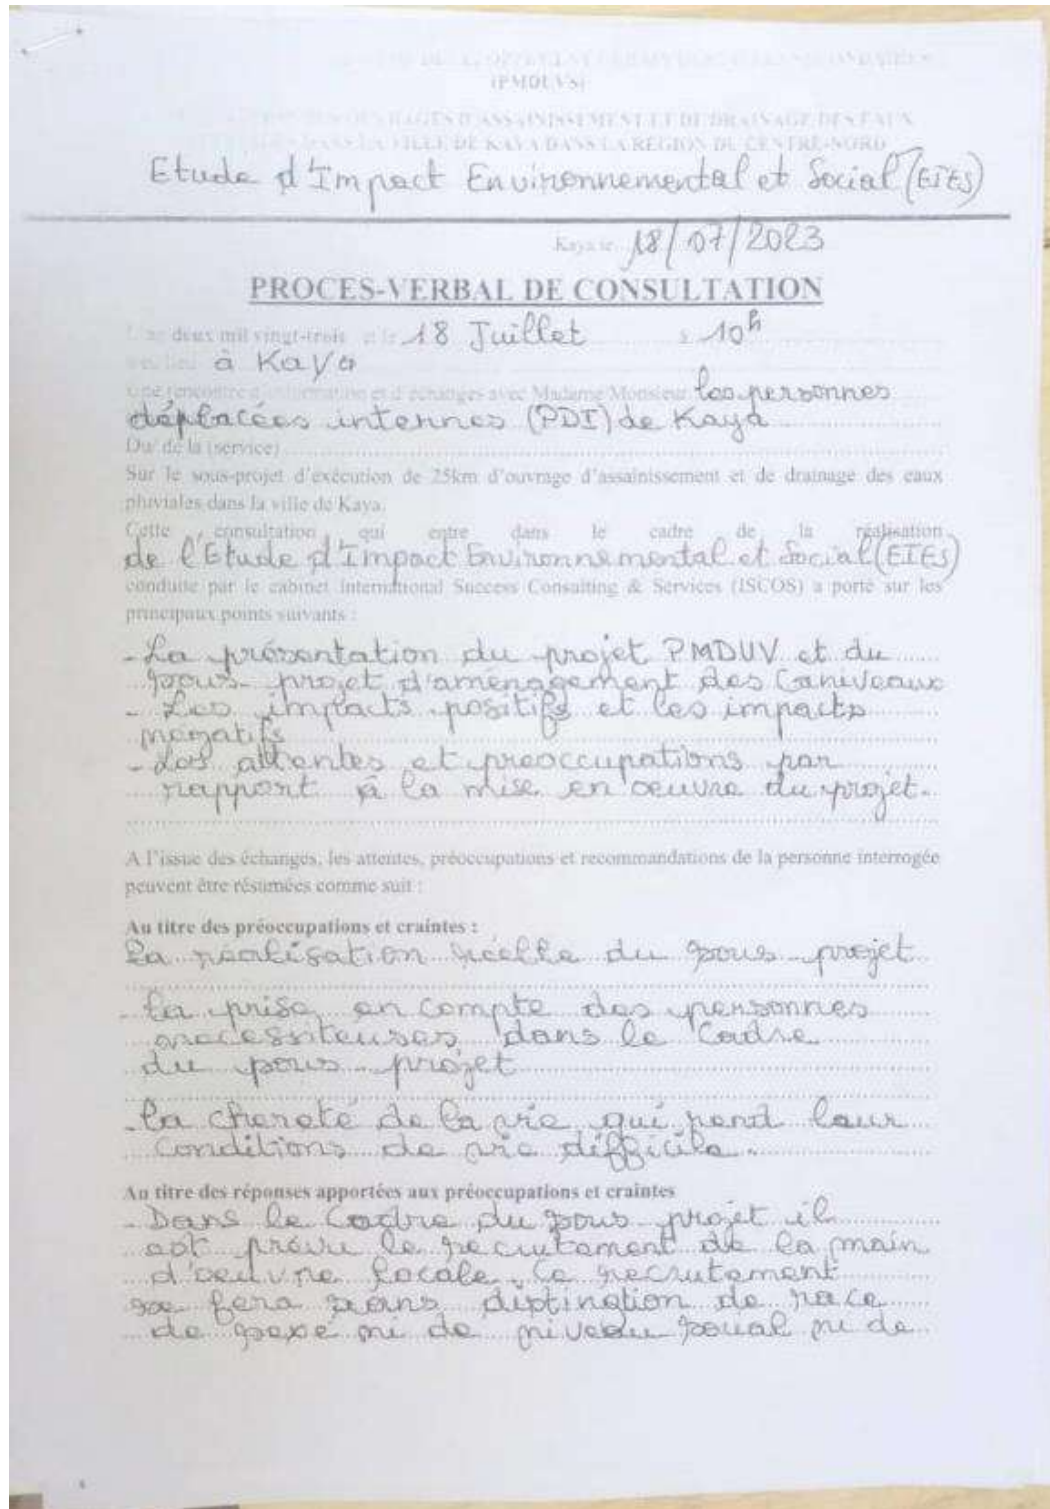 (PMDUVS)
DANS LA VILLE DE KAYA DANS LA REGION DU CENTRE-NORD
Etude d'Impact Environnemental et Social (EIES)
Kaya le 18/07/2023
PROCES-VERBAL DE CONSULTATION
deux mil vingt-trois et le 18 Juillet à 10h
à Kaya
Une rencontre d'information et d'échanges avec Madame/Monsieur les personnes
déplacées internes (PDI) de Kaya
Du/ de la (service)
Sur le sous-projet d'exécution de 25km d'ouvrage d'assainissement et de drainage des eaux
pluviales dans la ville de Kaya.
Cette consultation qui entre dans le cadre de la réalisation
de l'Etude d'Impact Environnemental et Social (EIES)
conduite par le cabinet International Success Consulting & Services (ISCOS) a porté sur les
principaux points suivants :
- La présentation du projet PMDUV et du
sous-projet d'aménagement des Caniveaux
- Les impacts positifs et les impacts
négatifs
- Les attentes et préoccupations par
rapport à la mise en oeuvre du projet.
A l'issue des échanges, les attentes, préoccupations et recommandations de la personne interrogée
peuvent être résumées comme suit :
Au titre des préoccupations et craintes :
La réalisation réelle du sous-projet
- la prise en compte des personnes
necessiteuses dans le Cadre
du sous-projet
- la chereté de la vie qui rend leur
Conditions de vie difficile.
Au titre des réponses apportées aux préoccupations et craintes
- Dans le Cadre du sous-projet il
est prévu le recrutement de la main
d'oeuvre locale. Ce recrutement
se fera sans distinction de race
de sexe ni de niveau social ni de